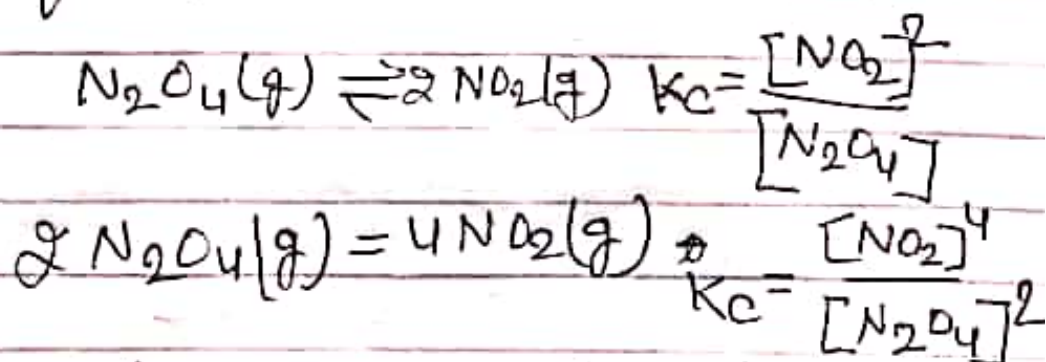 N₂O₄(g) ⇌ 2 NO₂(g) Kc = [NO₂]² / [N₂O₄]
2 N₂O₄(g) = 4 NO₂(g) Kc = [NO₂]⁴ / [N₂O₄]²